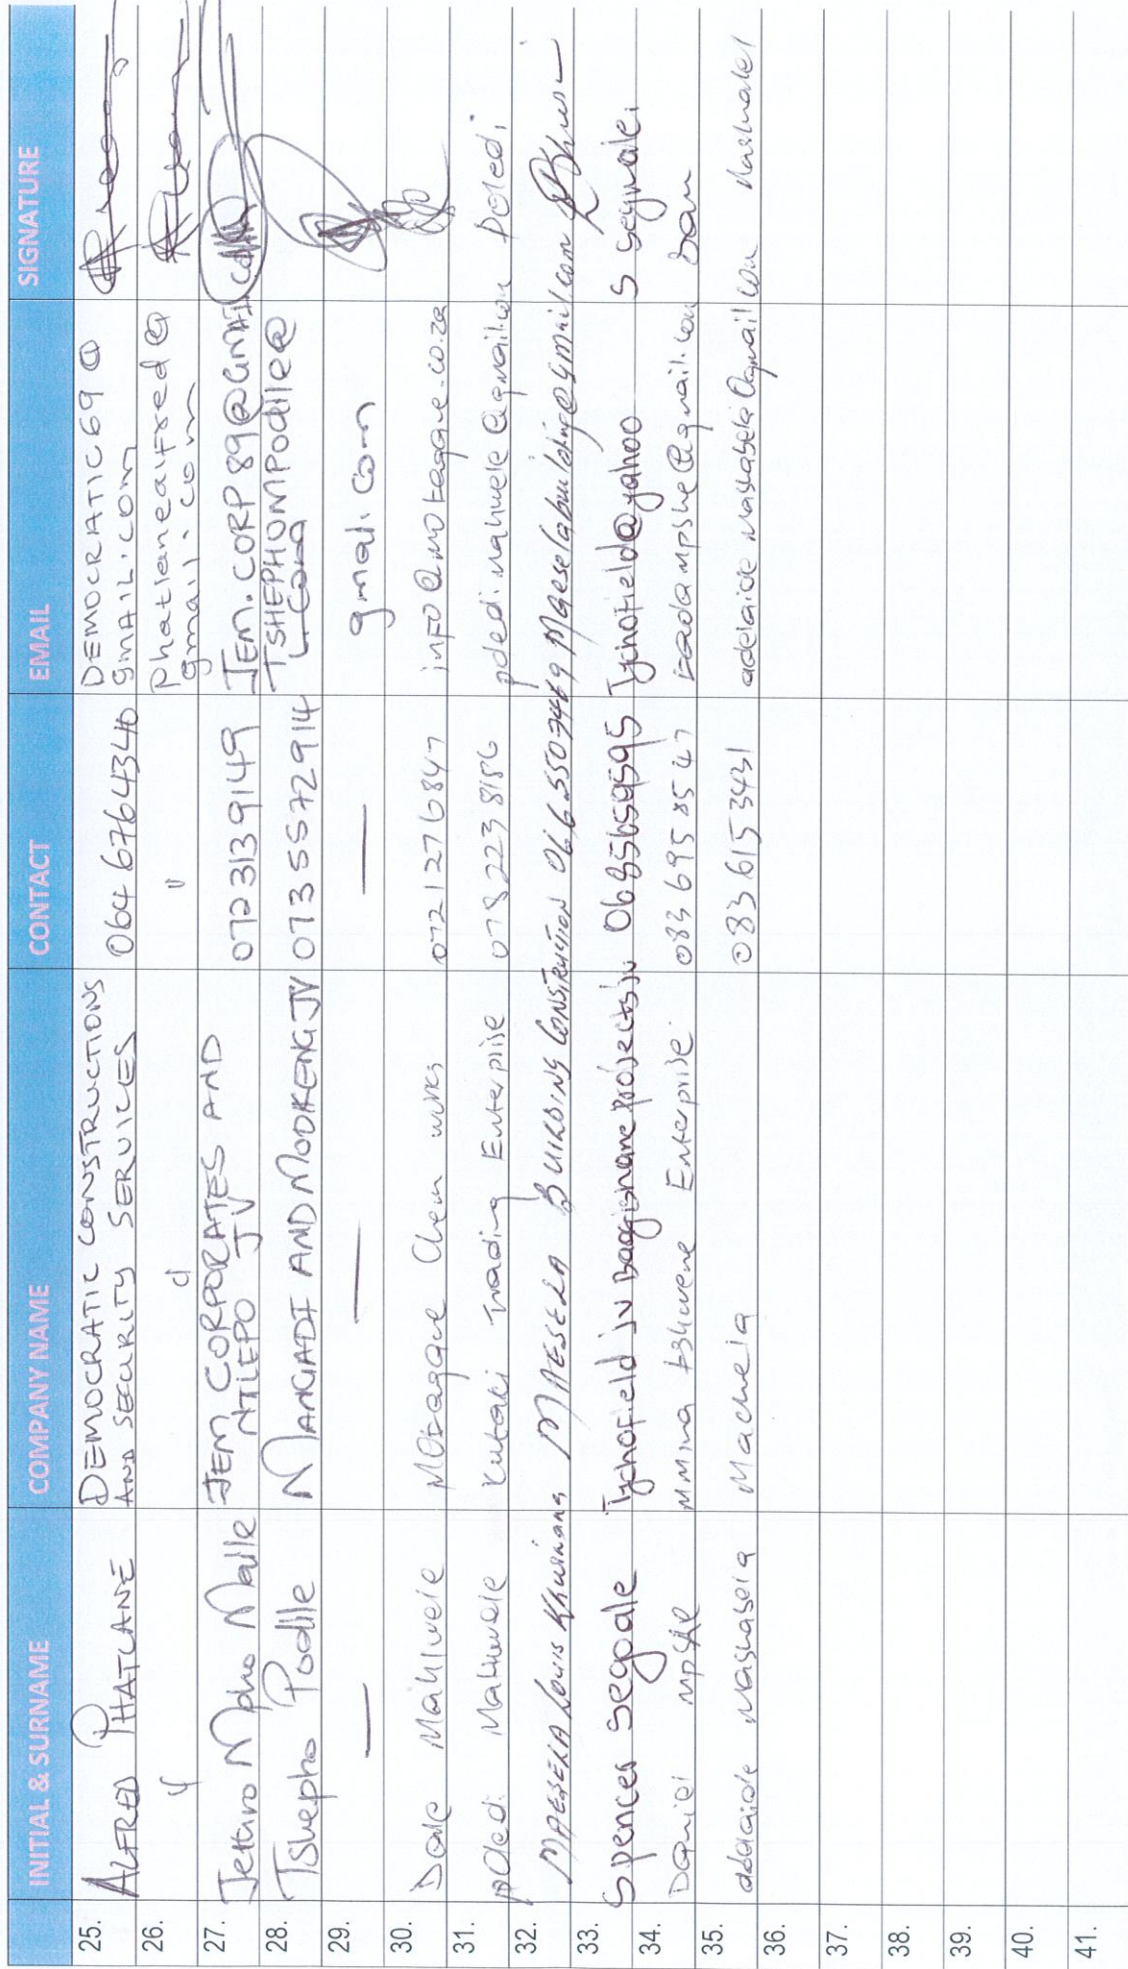 INITIAL & SURNAME COMPANY NAME CONTACT EMAIL SIGNATURE
25. ALFRED PHATLANE DEMOCRATIC CONSTRUCTIONS 064 6764340 DEMOCRATIC69@
AND SECURITY SERVICES gmail.com
26. " d " Phatlanealfred@
gmail.com
27. Jethro Mpho Maile JEM CORPORATES AND 0723139149 JEM.CORP89@GMAIL.COM
NTLEPO JV
28. Tshepho Podile MANGIADI AND MODIKENG JV 0735572914 TSHEPHOMPodile@
29. — — — gmail.com
30. Dale Mahlwele Motaggue Chem works 0721276847 info@motaggue.co.za
31. poledi Mahwele Kutaki Trading Enterprise 0782238186 poledi.mahwele@gmail.com Poledi
32. MAESELA Louis Khwinana MAESELA BUILDING CONSTRUCTION 0665507469 Maeselabuilding@gmail.com
33. Spences Segoale Tjchofield jv Bagginare projects jv 0685659595 Tjchofield@yahoo S Segoale
34. Daniel Mpshe Mmina tshwene Enterprise 0836958547 izaadampshe@gmail.com Dan
35. adelaide Mashabela Machela 0836153431 adelaide mashabela@gmail.com
36.
37.
38.
39.
40.
41.